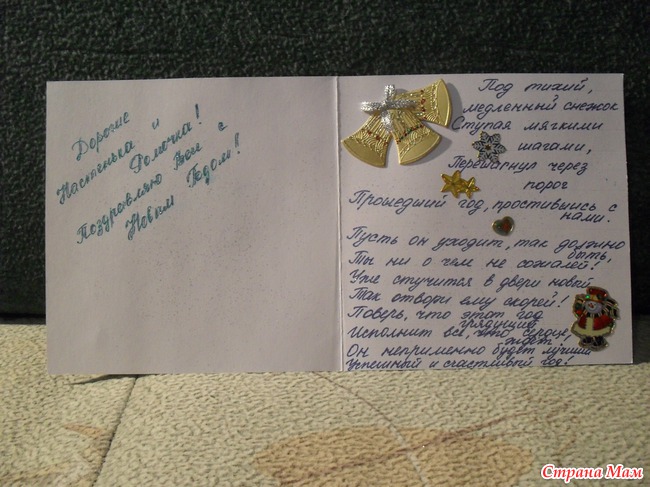 Дорогие
Настенька и
Ромочка!
Поздравляю Вас с
Новым Годом!
Под тихий,
медленный снежок
Ступая мягкими
шагами,
Перешагнул через
порог
Прошедший год, простившись с
нами.
Пусть он уходит, так должно
быть,
Ты ни о чем не сожалей!
Уже стучится в двери новый
Так отвори ему скорей!
Поверь, что этот год
грядущий
Исполнит все, что сердце
ждет!
Он неприменно будет лучший
Успешный и счастливый год!
Страна Мам